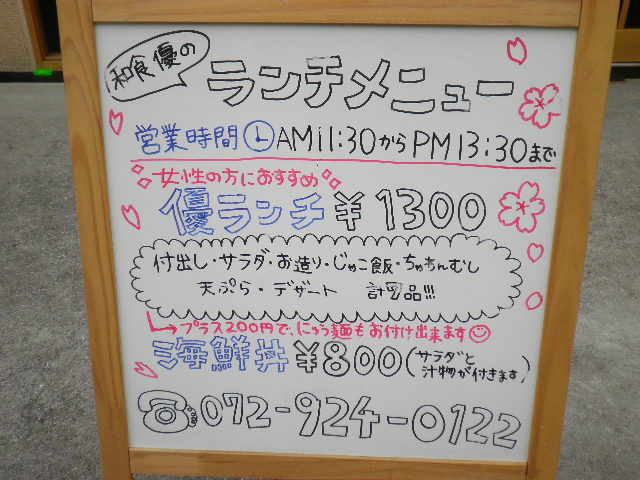 和食 優の
ランチメニュー
営業時間 AM11:30からPM13:30まで
女性の方におすすめ
優ランチ ¥1300
付出し・サラダ・お造り・じゃこ飯・ちゃわんむし
天ぷら・デザート 計 品!!!
プラス200円で、にゅう麺もお付け出来ます
海鮮丼 ¥800(サラダと
汁物が付きます)
072-924-0122